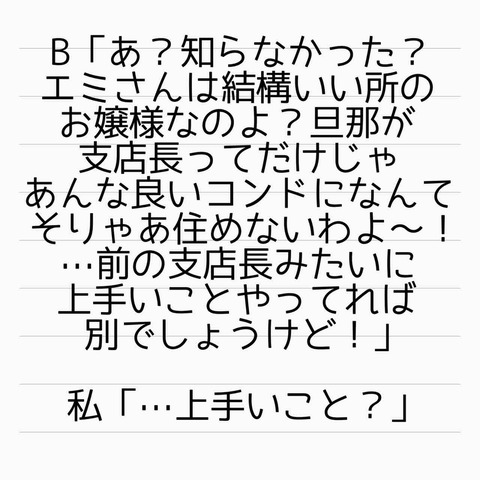 B「あ？知らなかった？
エミさんは結構いい所の
お嬢様なのよ？旦那が
支店長ってだけじゃ
あんな良いコンドになんて
そりゃあ住めないわよ〜！
…前の支店長みたいに
上手いことやってれば
別でしょうけど！」
私「…上手いこと？」